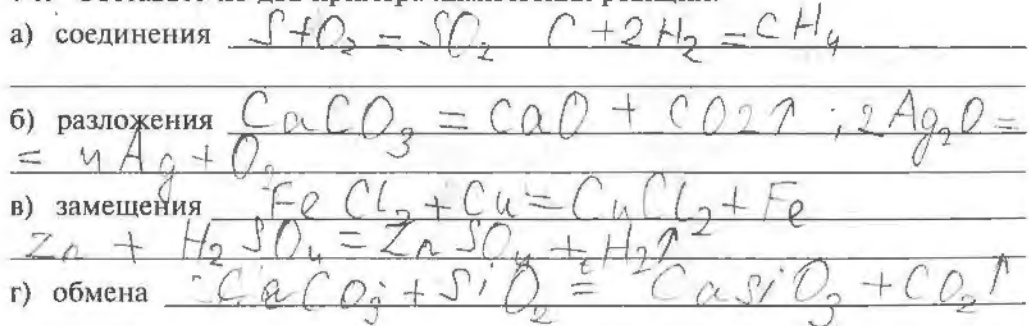 а) соединения S + O₂ = SO₂ C + 2H₂ = CH₄
б) разложения CaCO₃ = CaO + CO2↑ ; 2Ag₂O =
= 4Ag + O₂
в) замещения FeCl₂ + Cu = CuCl₂ + Fe
Zn + H₂SO₄ = ZnSO₄ + H₂↑
г) обмена CaCO₃ + SiO₂ = CaSiO₃ + CO₂↑